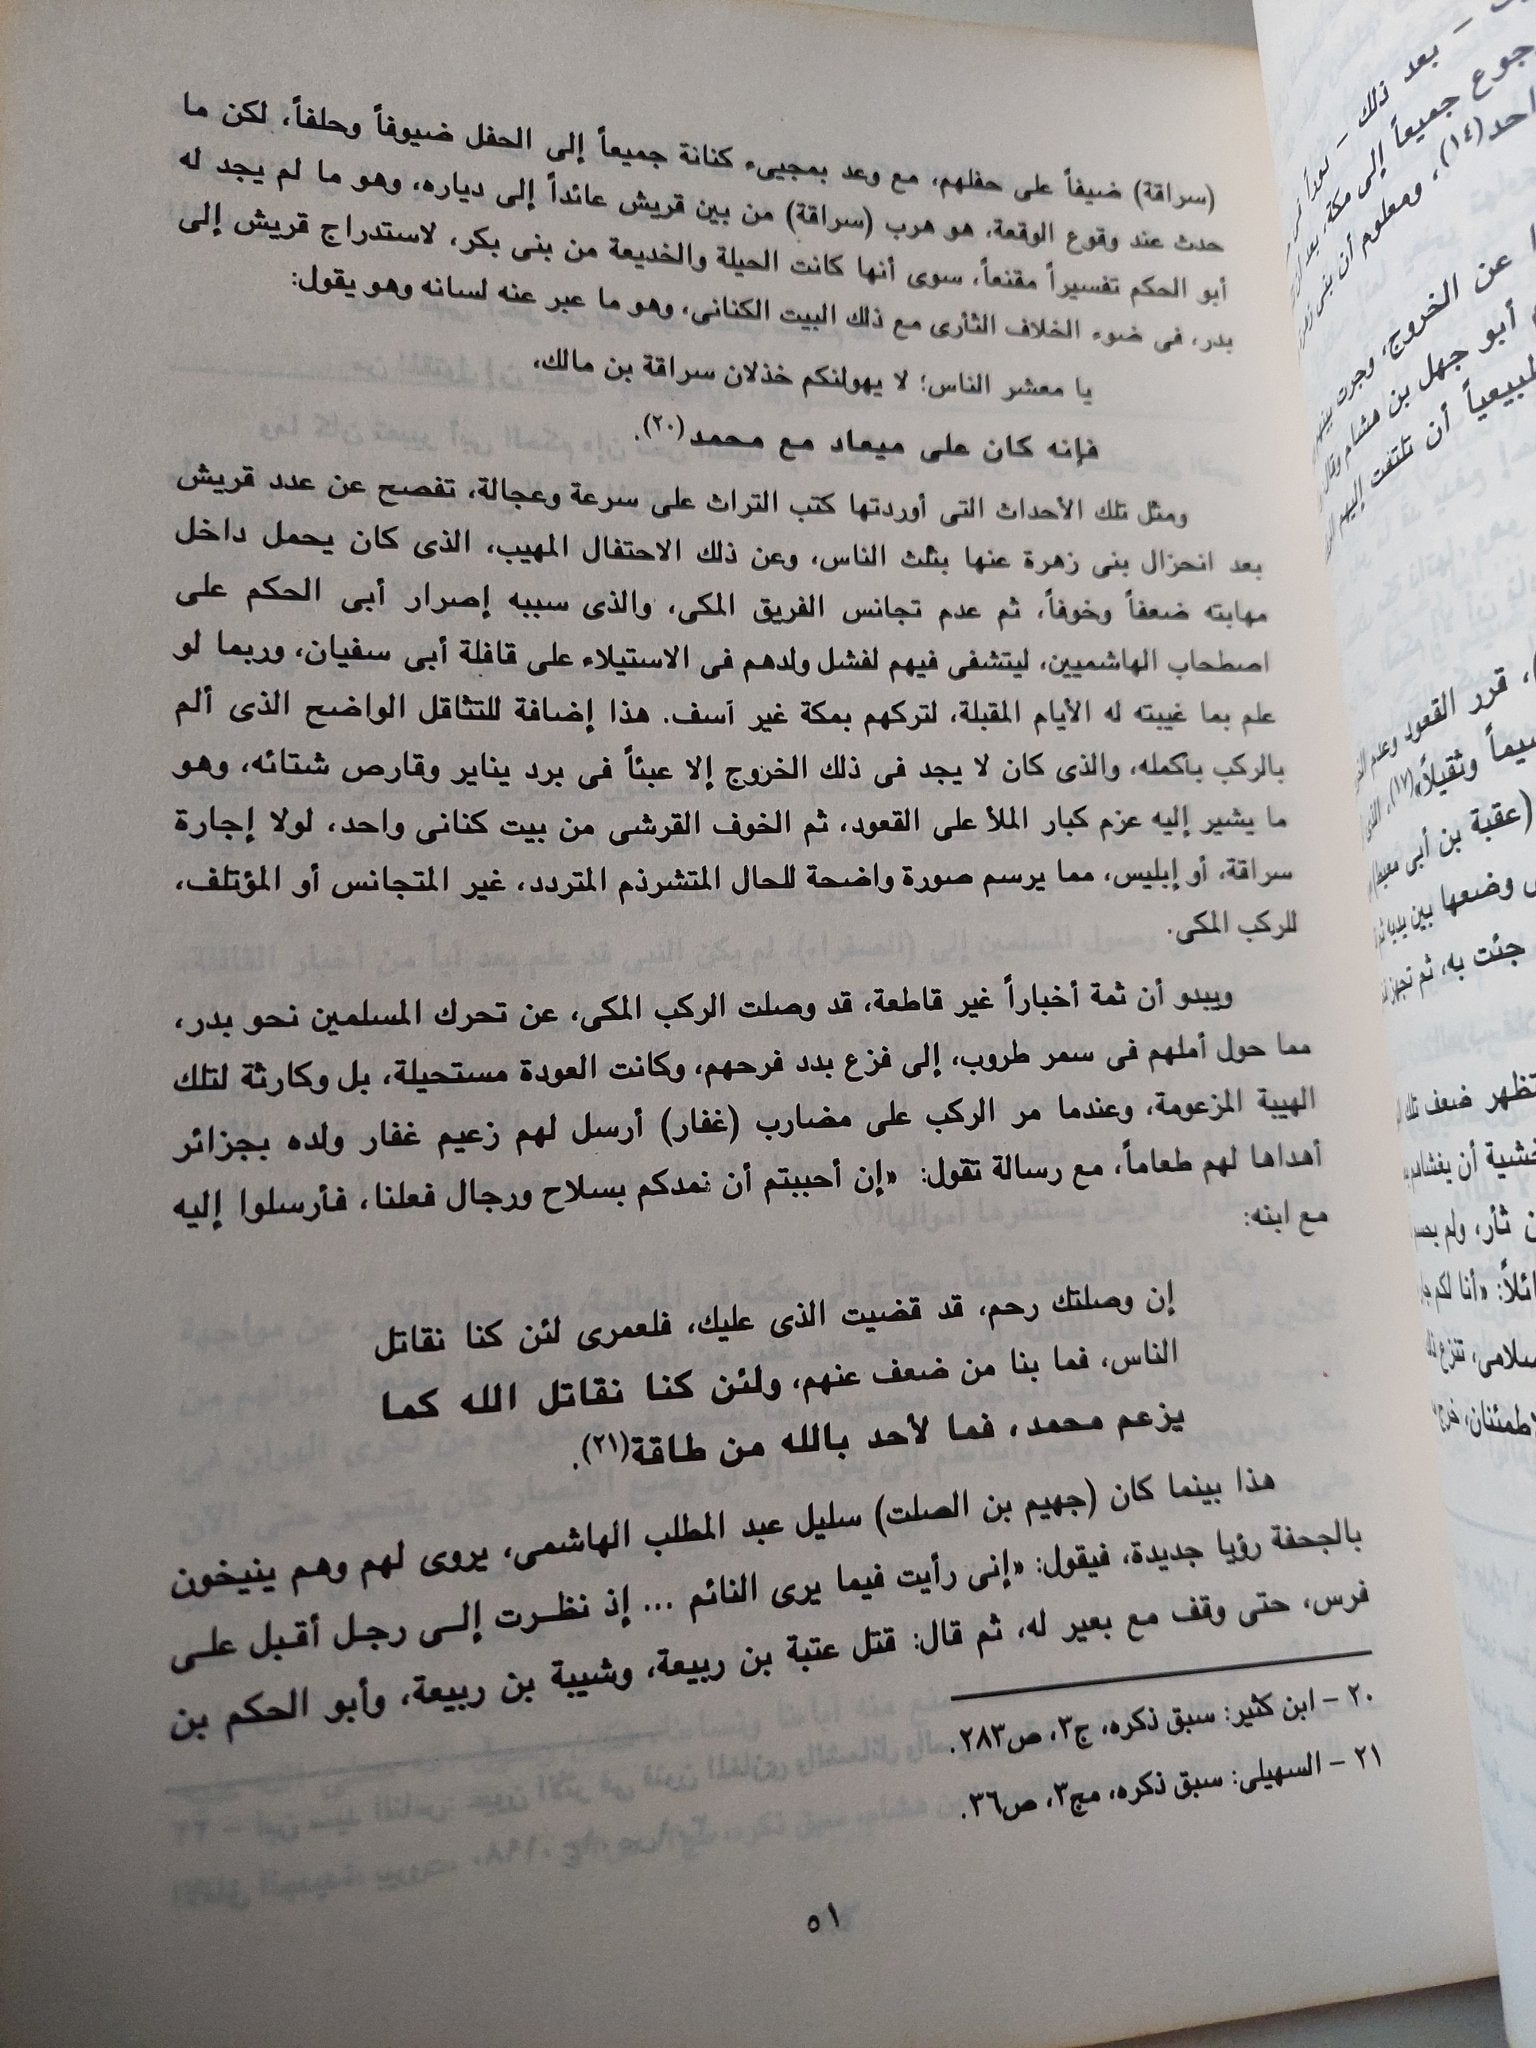 (سراقة) ضيفاً على حفلهم، مع وعد بمجيىء كنانة جميعاً إلى الحفل ضيوفاً وحلفاً، لكن ما
حدث عند وقوع الوقعة، هو هرب (سراقة) من بين قريش عائداً إلى دياره، وهو ما لم يجد له
أبو الحكم تفسيراً مقنعاً، سوى أنها كانت الحيلة والخديعة من بنى بكر، لاستدراج قريش إلى
بدر، فى ضوء الخلاف الثأرى مع ذلك البيت الكنانى، وهو ما عبر عنه لسانه وهو يقول:
يا معشر الناس؛ لا يهولنكم خذلان سراقة بن مالك،
فإنه كان على ميعاد مع محمد(٢٠).
ومثل تلك الأحداث التى أوردتها كتب التراث على سرعة وعجالة، تفصح عن عدد قريش
بعد انحزال بنى زهرة عنها بثلث الناس، وعن ذلك الاحتفال المهيب، الذى كان يحمل داخل
مهابته ضعفاً وخوفاً، ثم عدم تجانس الفريق المكى، والذى سببه إصرار أبى الحكم على
اصطحاب الهاشميين، ليتشفى فيهم لفشل ولدهم فى الاستيلاء على قافلة أبى سفيان، وربما لو
علم بما غيبته له الأيام المقبلة، لتركهم بمكة غير آسف. هذا إضافة للتثاقل الواضح الذى ألم
بالركب بأكمله، والذى كان لا يجد فى ذلك الخروج إلا عبئاً فى برد يناير وقارص شتائه، وهو
ما يشير إليه عزم كبار الملأ على القعود، ثم الخوف القرشى من بيت كنانى واحد، لولا إجارة
سراقة، أو إبليس، مما يرسم صورة واضحة للحال المتشرذم المتردد، غير المتجانس أو المؤتلف،
للركب المكى.
ويبدو أن ثمة أخباراً غير قاطعة، قد وصلت الركب المكى، عن تحرك المسلمين نحو بدر،
مما حول أملهم فى سمر طروب، إلى فزع بدد فرحهم، وكانت العودة مستحيلة، بل وكارثة لتلك
الهيبة المزعومة، وعندما مر الركب على مضارب (غفار) أرسل لهم زعيم غفار ولده بجزائر
أهداها لهم طعاماً، مع رسالة تقول: «إن أحببتم أن نمدكم بسلاح ورجال فعلنا، فأرسلوا إليه
مع ابنه:
إن وصلتك رحم، قد قضيت الذى عليك، فلعمرى لئن كنا نقاتل
الناس، فما بنا من ضعف عنهم، ولئن كنا نقاتل الله كما
يزعم محمد، فما لأحد بالله من طاقة(٢١).
هذا بينما كان (جهيم بن الصلت) سليل عبد المطلب الهاشمى، يروى لهم وهم ينيخون
بالجحفة رؤيا جديدة، فيقول: «إنى رأيت فيما يرى النائم ... إذ نظرت إلى رجل أقبل على
فرس، حتى وقف مع بعير له، ثم قال: قتل عتبة بن ربيعة، وشيبة بن ربيعة، وأبو الحكم بن
٢٠ - ابن كثير: سبق ذكره، ج٣، ص٢٨٣.
٢١ - السهيلى: سبق ذكره، مج٣، ص٣٦.
٥١
- بعد ذلك -
جميعاً إلى مكة، بعد
(١٤)، ومعلوم أن بنى
عن الخروج، وجرت بينهم
أبو جهل بن هشام وقال
أن تلتفت إليهم
قرر القعود وعدم
وثقيلاً»(١٧)، الذى
(عقبة بن أبى معيط)
وضعها بين يديه
جئت به، ثم
تظهر ضعف تلك
أن يغشاهم
ثأر، ولم
«أنا لكم جار
تنزع